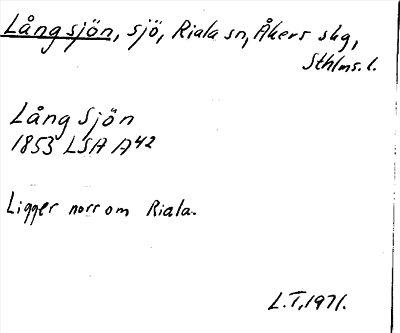 Långsjön, sjö, Riala sn, Åkers skg,
Sthlms. l.
Lång Sjön
1853 LSA A42
Ligger norr om Riala.
L.T, 1971.